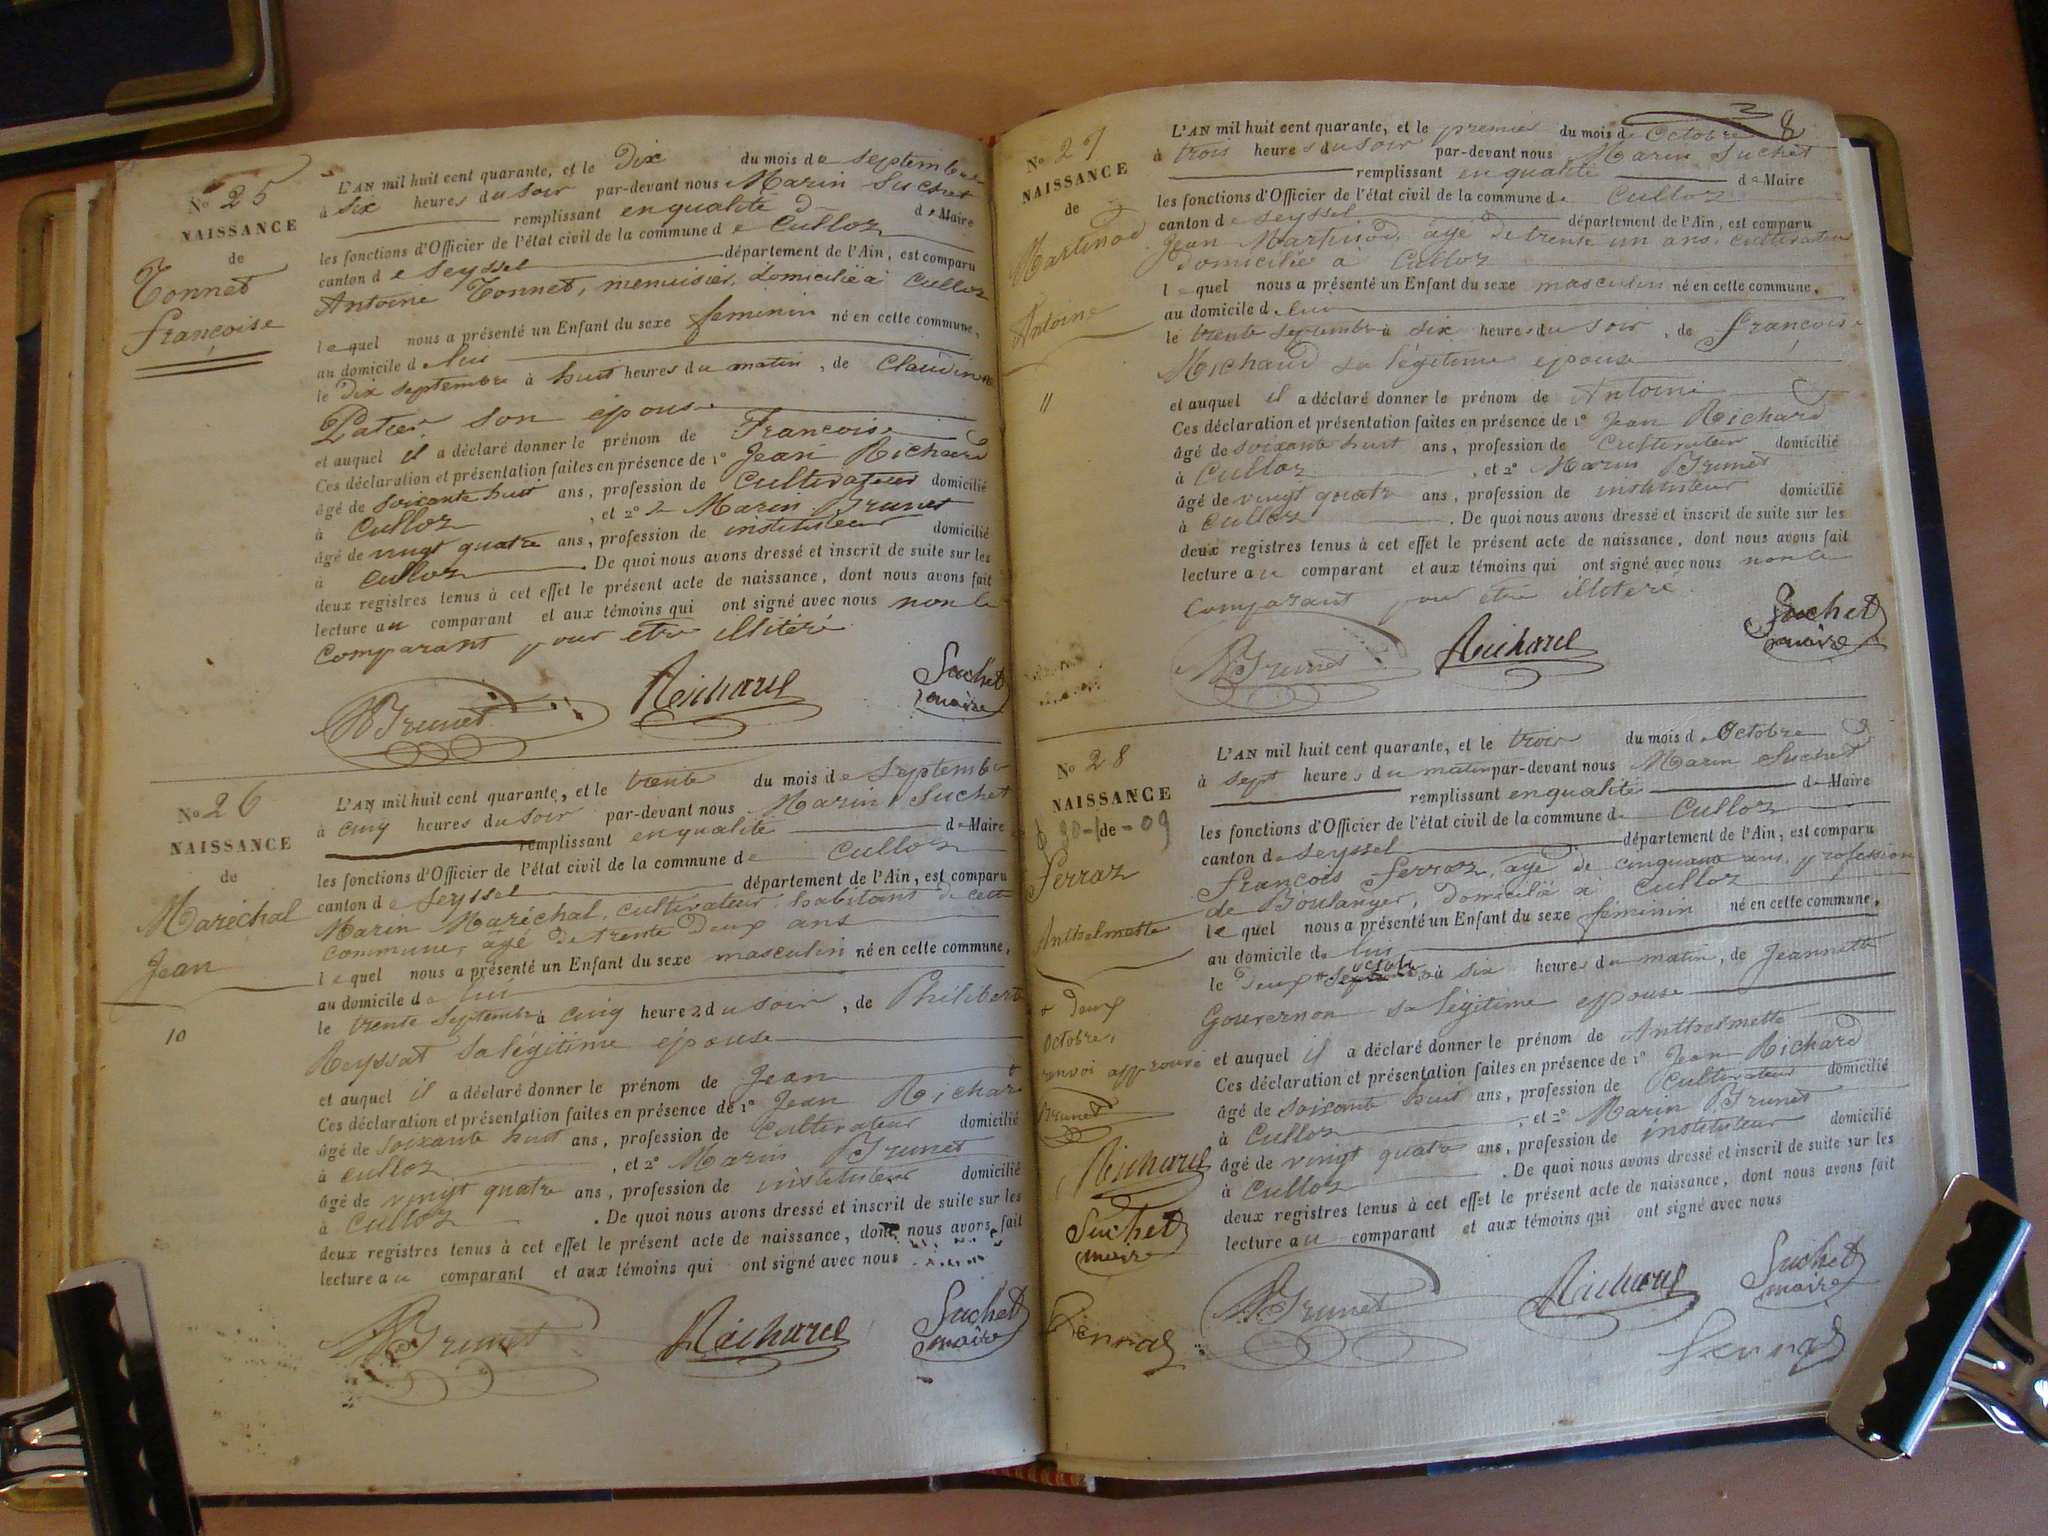 N.º 25
NAISSANCE
de
Tonnet
Françoise
L'AN mil huit cent quarante, et le Dix du mois de septembre
à six heures du soir par-devant nous Marin Suchet
remplissant en qualité de Maire
les fonctions d'Officier de l'état civil de la commune de Culloz
canton de Seyssel département de l'Ain, est comparu
Antoine Tonnet, menuisier, domicilié à Culloz
lequel nous a présenté un Enfant du sexe féminin né en cette commune,
au domicile de lui
le dix septembre à huit heures du matin, de Claudine
son épouse
et auquel il a déclaré donner le prénom de Françoise
Ces déclaration et présentation faites en présence de 1º Jean Richard
âgé de soixante huit ans, profession de Cultivateur domicilié
à Culloz, et 2º Marin Brunet
âgé de vingt quatre ans, profession de instituteur domicilié
à Culloz. De quoi nous avons dressé et inscrit de suite sur les
deux registres tenus à cet effet le présent acte de naissance, dont nous avons fait
lecture au comparant et aux témoins qui ont signé avec nous non le
comparant pour être illitéré
Brunet Richard Suchet
maire
Nº 26
NAISSANCE
de
Maréchal
Jean
10
L'AN mil huit cent quarante, et le trente du mois de Septembre
à cinq heures du soir par-devant nous Marin Suchet
remplissant en qualité de Maire
les fonctions d'Officier de l'état civil de la commune de Culloz
canton de Seyssel département de l'Ain, est comparu
Marin Maréchal, cultivateur, habitant de cette
commune, âgé de trente deux ans
lequel nous a présenté un Enfant du sexe masculin né en cette commune,
au domicile de lui
le trente Septembre à cinq heures du soir, de Philiberte
Reyssat sa légitime épouse
et auquel il a déclaré donner le prénom de Jean
Ces déclaration et présentation faites en présence de 1º Jean Richard
âgé de soixante huit ans, profession de Cultivateur domicilié
à Culloz, et 2º Marin Brunet
âgé de vingt quatre ans, profession de instituteur domicilié
à Culloz. De quoi nous avons dressé et inscrit de suite sur les
deux registres tenus à cet effet le présent acte de naissance, dont nous avons fait
lecture au comparant et aux témoins qui ont signé avec nous
Brunet Richard Suchet
maire
8
Nº 27
NAISSANCE
de
Martinod
Antoine
11
L'AN mil huit cent quarante, et le premier du mois de Octobre
à trois heures du soir par-devant nous Marin Suchet
remplissant en qualité de Maire
les fonctions d'Officier de l'état civil de la commune de Culloz
canton de Seyssel département de l'Ain, est comparu
Jean Martinod, âgé de trente un ans, cultivateur
domicilié à Culloz
lequel nous a présenté un Enfant du sexe masculin né en cette commune,
au domicile de lui
le trente septembre à six heures du soir, de Françoise
Michaud sa légitime épouse
et auquel il a déclaré donner le prénom de Antoine
Ces déclaration et présentation faites en présence de 1º Jean Richard
âgé de soixante huit ans, profession de Cultivateur domicilié
à Culloz, et 2º Marin Brunet
âgé de vingt quatre ans, profession de instituteur domicilié
à Culloz. De quoi nous avons dressé et inscrit de suite sur les
deux registres tenus à cet effet le présent acte de naissance, dont nous avons fait
lecture au comparant et aux témoins qui ont signé avec nous non le
Comparant pour être illitéré
Brunet Richard Suchet
maire
Nº 28
NAISSANCE
de
Ferraz
Anthelmette
+ deux
octobre,
renvoi approuvé
Brunet
Richard
Suchet
maire
Ferraz
L'AN mil huit cent quarante, et le trois du mois d Octobre
à sept heures du matin par-devant nous Marin Suchet
remplissant en qualité de Maire
les fonctions d'Officier de l'état civil de la commune de Culloz
canton de Seyssel département de l'Ain, est comparu
François Ferraz, âgé de cinquante ans, profession
de Boulanger, domicilié à Culloz
lequel nous a présenté un Enfant du sexe féminin né en cette commune,
au domicile de lui
le deux octobre à six heures du matin, de Jeannette
Gouvernon sa légitime épouse
et auquel il a déclaré donner le prénom de Anthelmette
Ces déclaration et présentation faites en présence de 1º Jean Richard
âgé de soixante huit ans, profession de Cultivateur domicilié
à Culloz, et 2º Marin Brunet
âgé de vingt quatre ans, profession de instituteur domicilié
à Culloz. De quoi nous avons dressé et inscrit de suite sur les
deux registres tenus à cet effet le présent acte de naissance, dont nous avons fait
lecture au comparant et aux témoins qui ont signé avec nous
Brunet Richard Suchet
maire
Ferraz